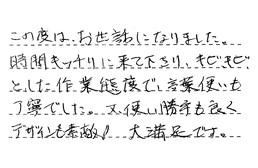 この度は、お世話になりました。
時間キッチリに来て下さり、キビキビ
とした作業態度で、言葉使いも
丁寧でした。又使い勝手も良く
デザインも素敵！大満足です。